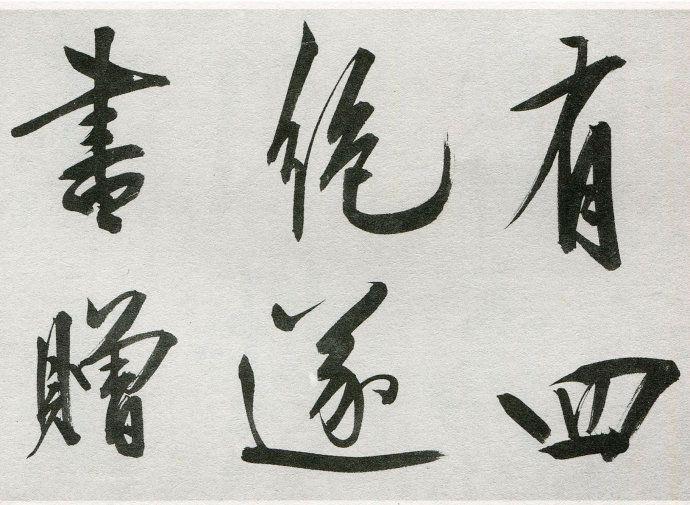 有四
絕遂
書贈